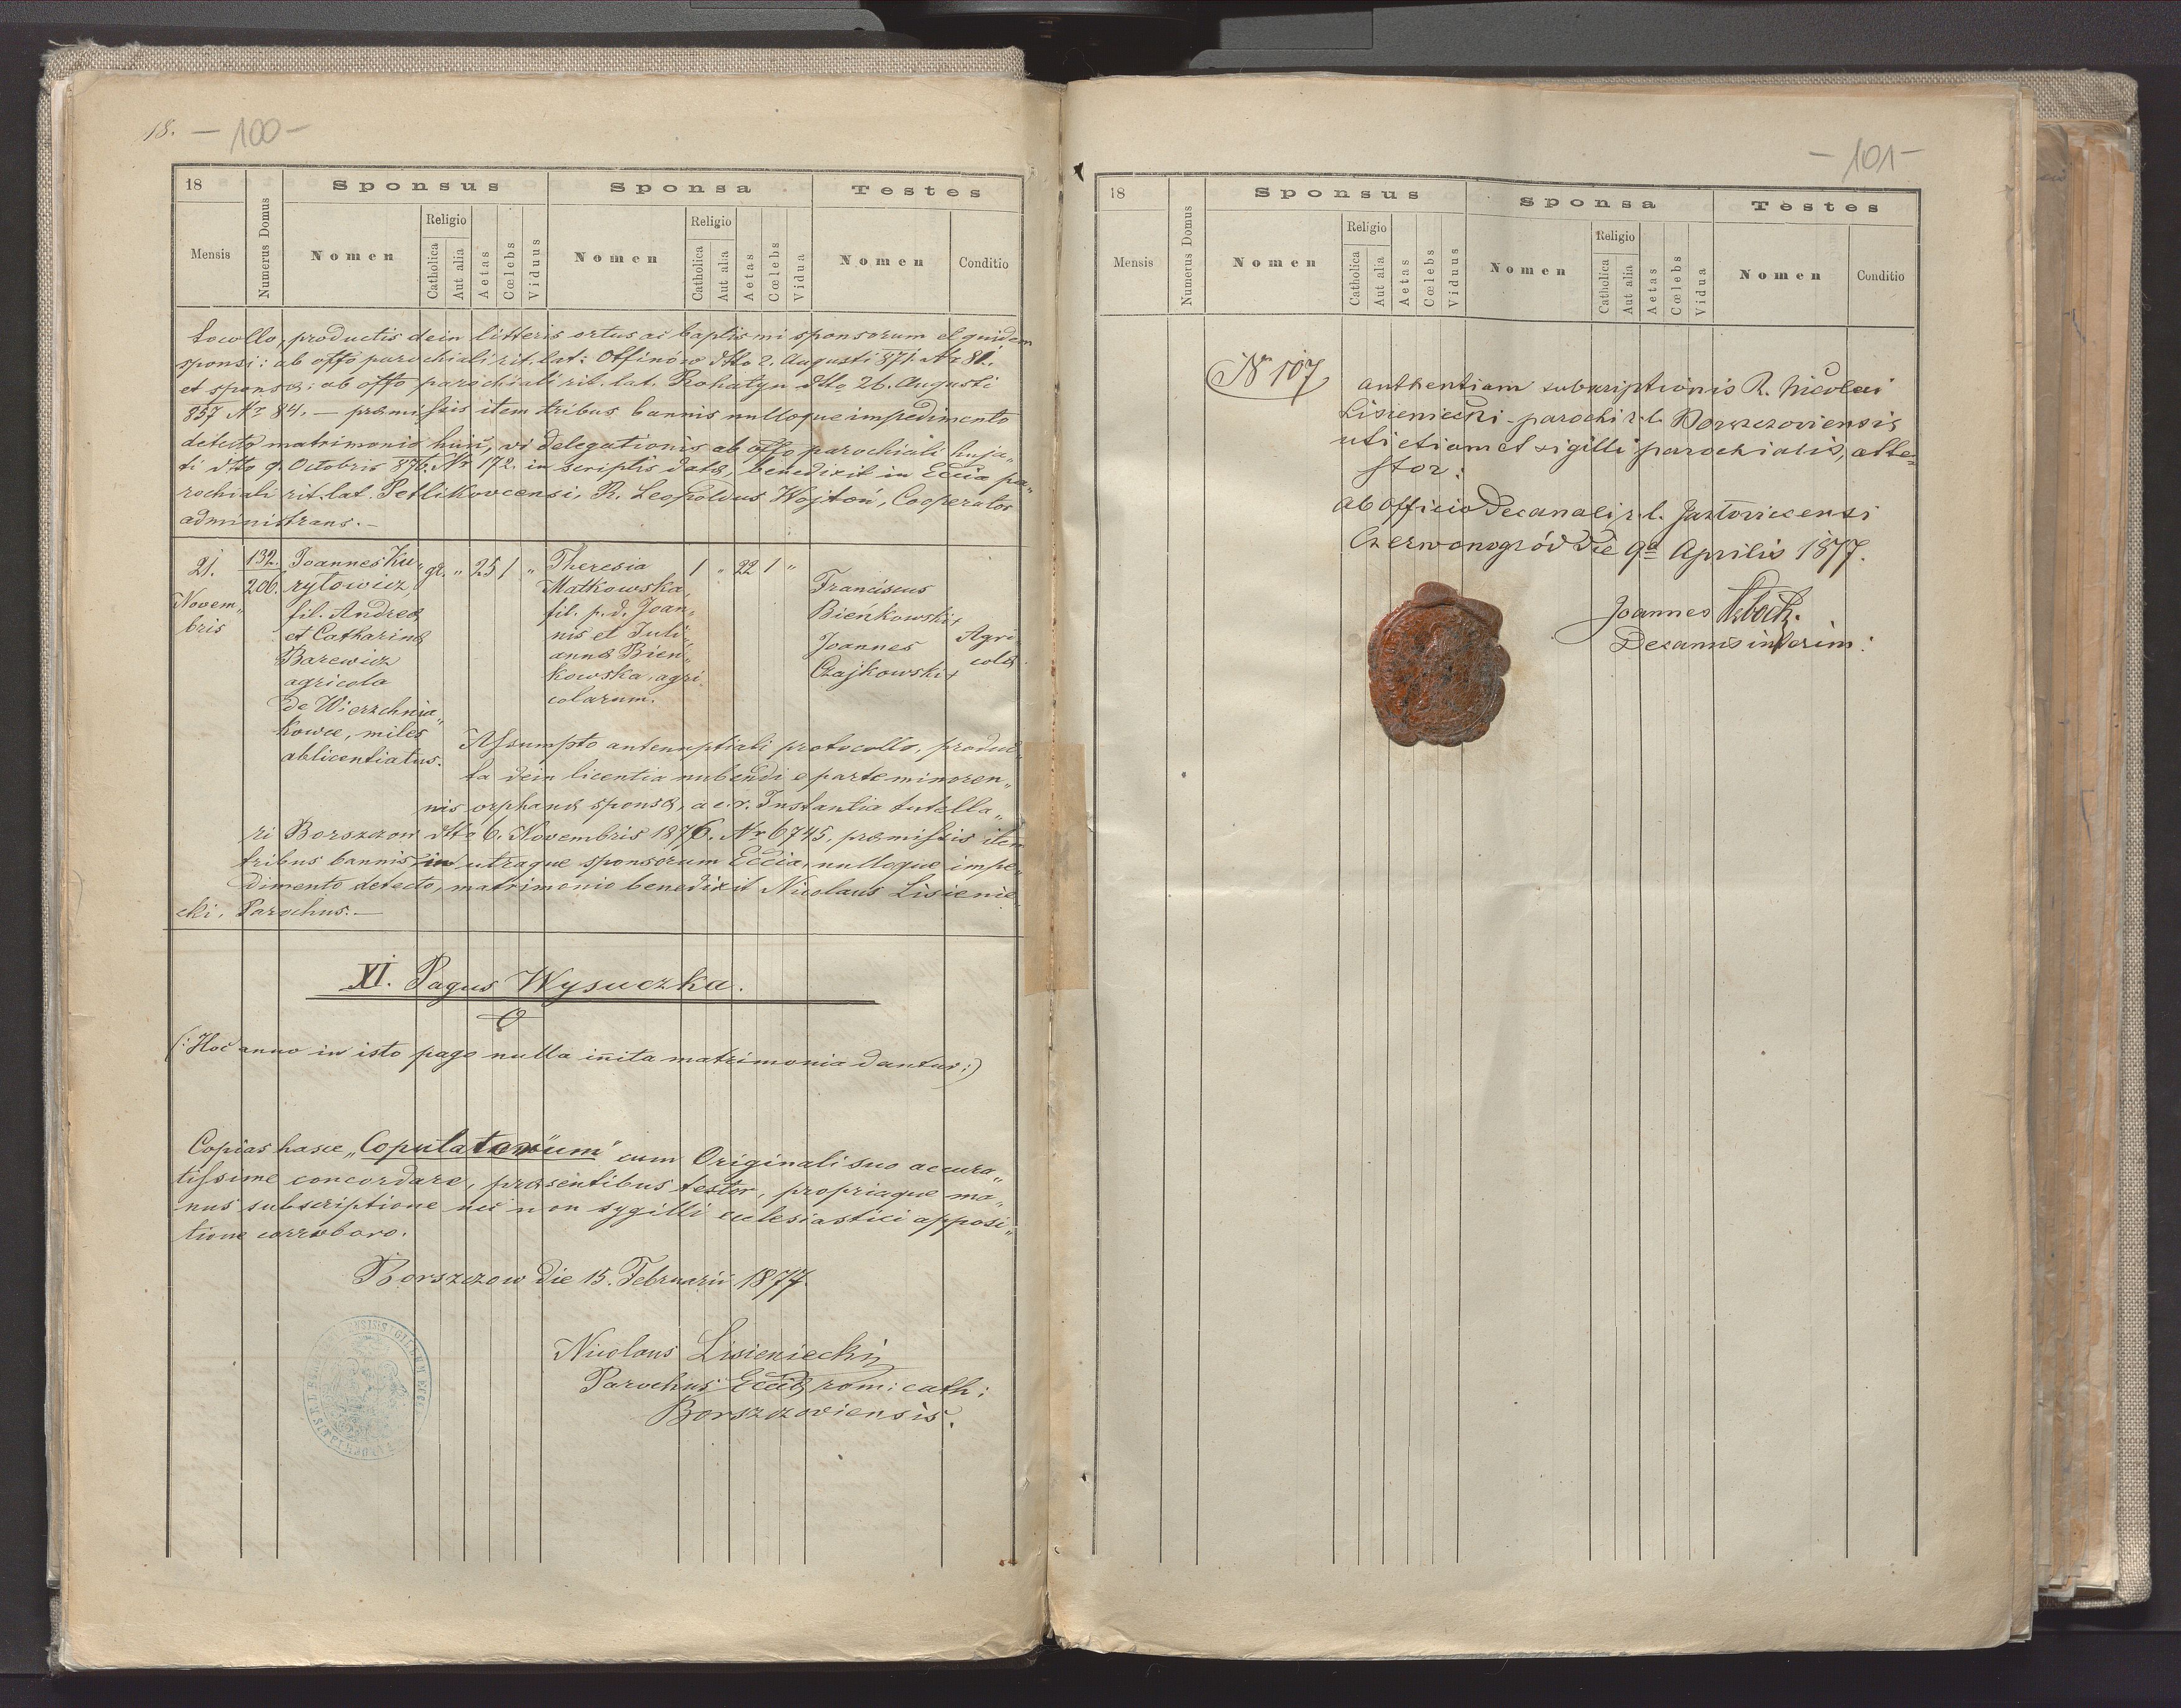 18. — 100 —
18
Sponsus
Sponsa
Testes
Mensis
Numerus Domus
Nomen
Religio
Catholica
Aut alia
Aetas
Cœlebs
Viduus
Nomen
Religio
Catholica
Aut alia
Aetas
Cœlebs
Vidua
Nomen
Conditio
tocollo, productis dein litteris ortus ac baptismi sponsorum et quidem
sponsi: ab offo parochiali rit. lat: Offinów dtto 2. Augusti 871. Nr 81.,
et sponsæ: ab offo parochiali rit. lat. Rohatyn dtto 26. Augusti
857 Nr 84. — præmissis item tribus bannis nulloque impedimento
detecto matrimonio huic, vi delegationis ab offo parochiali huja„
ti dtto 9. Octobris 876. Nr 172. in scriptis datæ, benedixit in Eccia pa„
rochiali rit. lat. Petlikovcensi, R. Leopoldus Wojtoń, Cooperator
administrans. —
21.
Novem„
bris
132.
206.
Joannes Ku„
rytowicz,
fil. Andreæ
et Catharinæ
Barewicz
agricola
de Wierzchnia„
kowce, miles
ablicentiatus.
gr. „ 25 1 „
Theresia
Matkowska,
fil. p. d. Joan„
nis et Juli„
annæ Bień„
kowska, agri„
colarum.
1 „ 22 1 „
Franciscus
Bieńkowski +
Joannes
Czajkowski +
Agri
colæ
Assumpto antenuptiali protocollo, produc„
ta dein licentia nubendi e parte minoren„
nis orphanæ sponsæ, a c. r. Instantia tutella„
ri Borszczow dtto 6. Novembris 1876. Nr 6745, præmissis item
tribus bannis in utraque sponsorum Eccia, nulloque impe„
dimento detecto, matrimonio benedixit Nicolaus Lisienie„
cki, Parochus. —
XI. Pagus Wysuczka.
(: Hoc anno in isto pago nulla inita matrimonia dantur :)
Copias hasce „Copulatorum" cum Originali suo accura„
tissime concordare, præsentibus testor, propriaque ma„
nus subscriptione nec non sygilli ecclesiastici apposi„
tione corroboro.
Borszczow die 15. Februarii 1877.
Nicolaus Lisieniecki
Parochus Ecciæ rom: cath:
Borszczoviensis.
— 101 —
18
Sponsus
Sponsa
Testes
Mensis
Numerus Domus
Nomen
Religio
Catholica
Aut alia
Aetas
Cœlebs
Viduus
Nomen
Religio
Catholica
Aut alia
Aetas
Cœlebs
Vidua
Nomen
Conditio
Nr 107
authentiam subscriptionis R. Nicolai
Lisieniecki parochi r. l. Borszczoviensis
uti etiam et sigilli parochialis, atte„
stor:
Ab Officio Decanali r. l. Jazłovicensi
Czerwonogród die 9a Aprilis 1877.
Joannes
Decanus interim: